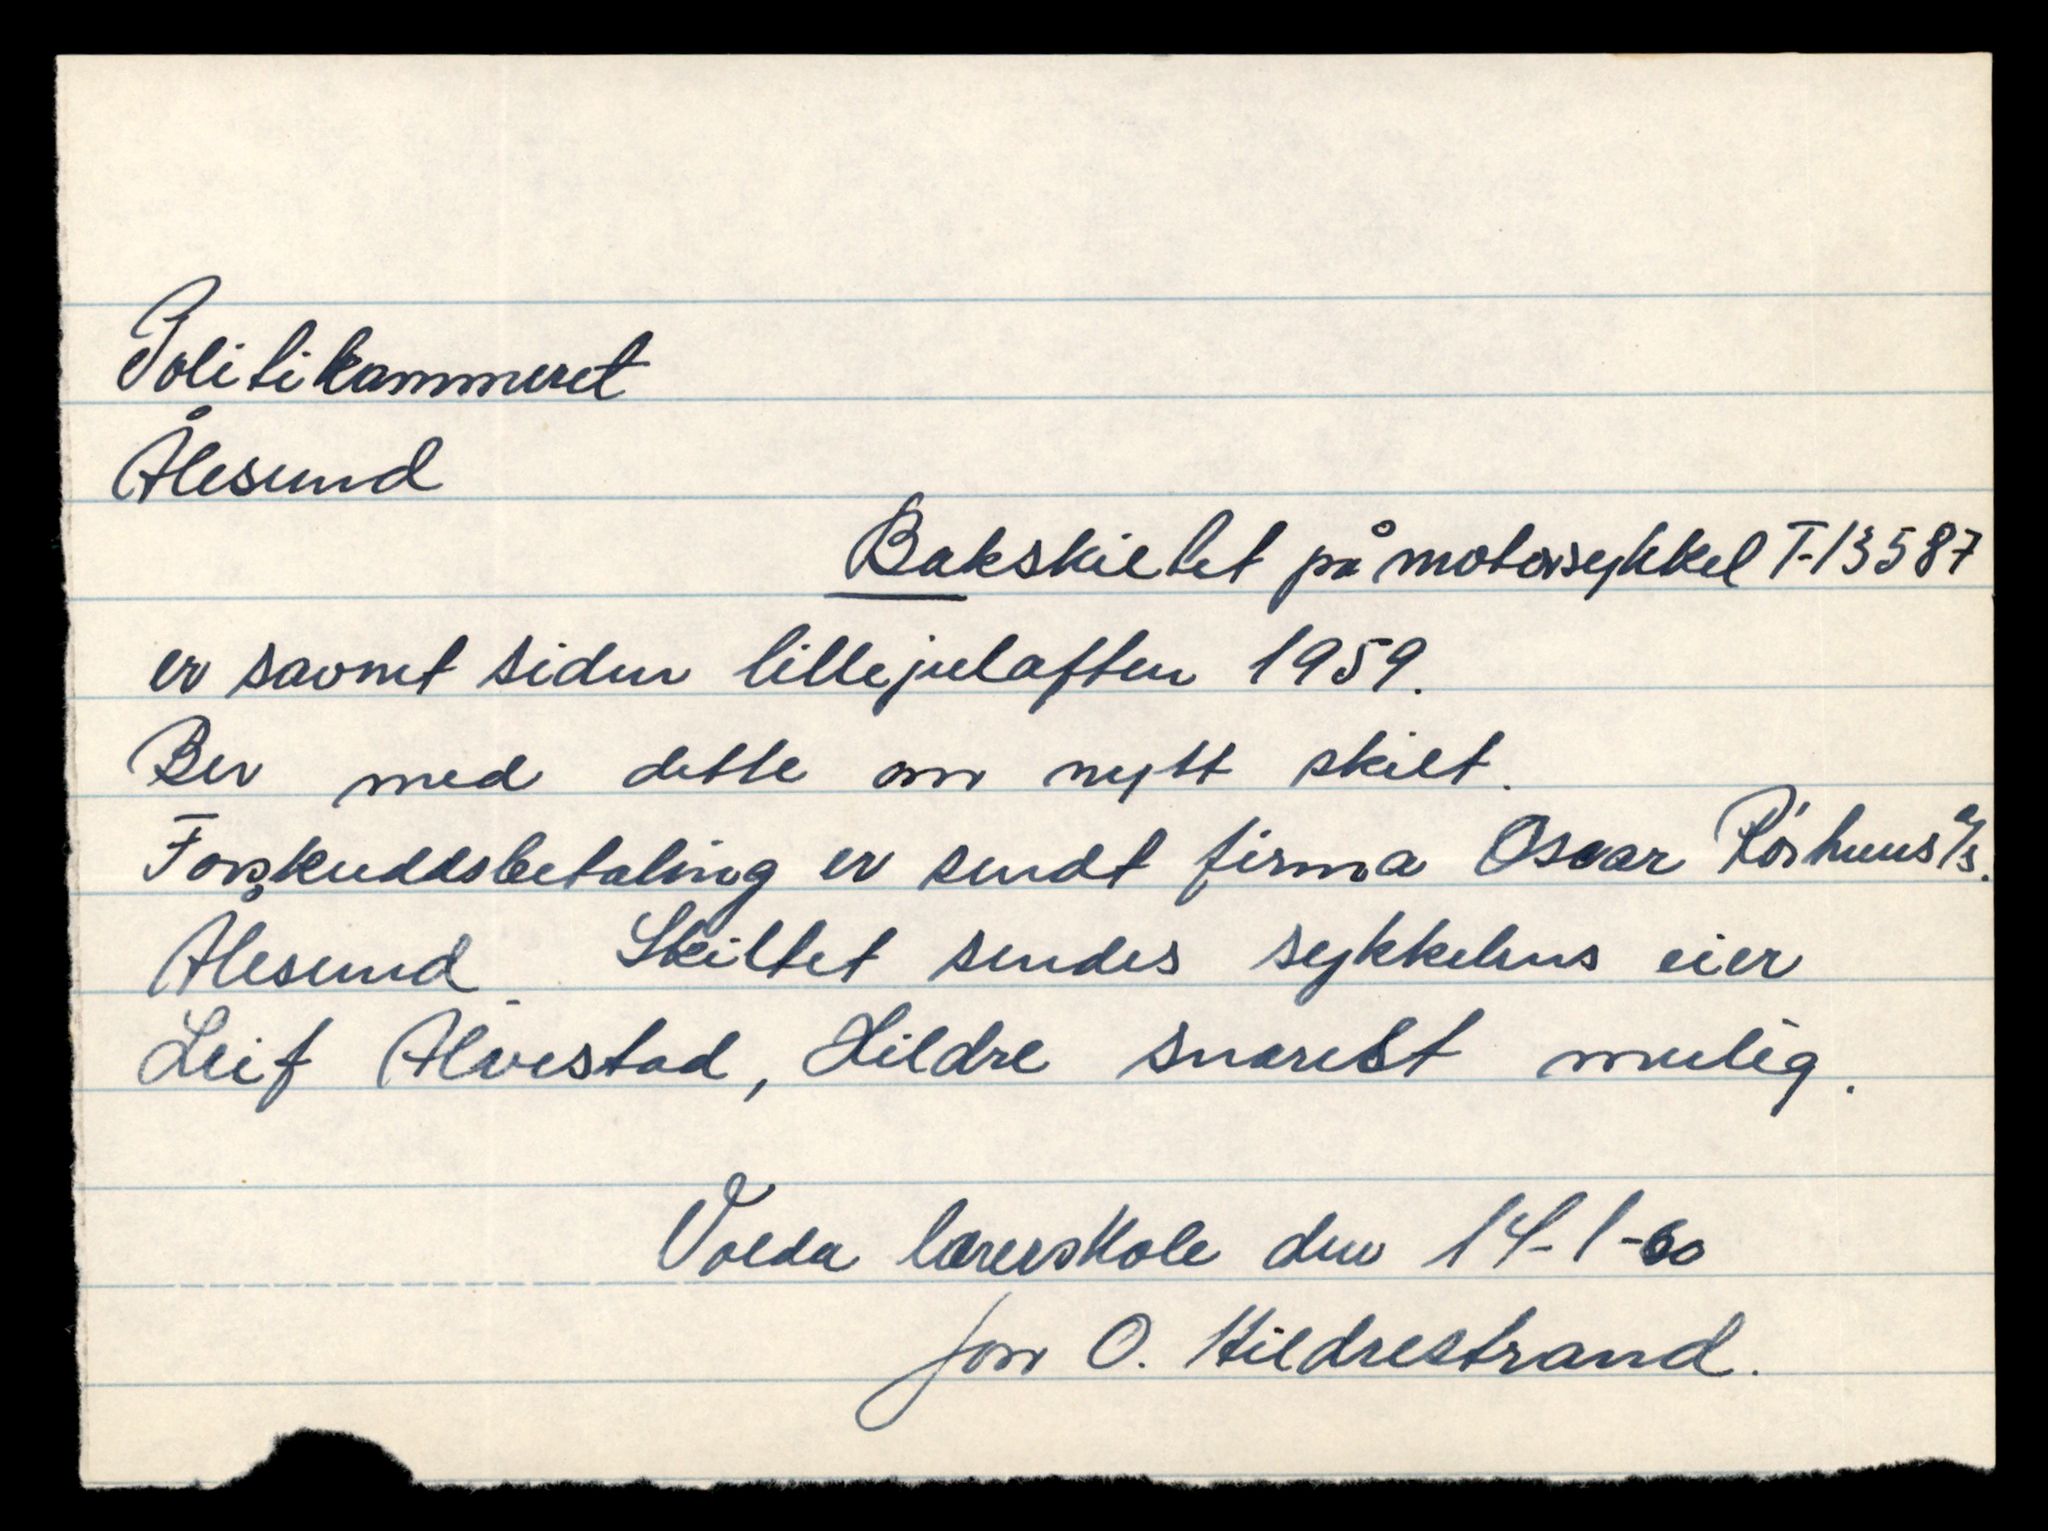 Politikammeret
Ålesund
Bakskiltet på motorsykkel T-13587
er savnet siden lillejulaften 1959.
Ber med dette om nytt skilt.
Forskuddsbetaling er sendt firma Oscar Rörhuus A/S.
Ålesund. Skiltet sendes sykkelens eier
Leif Alvestad, Hildre snarest mulig.
Volda lærerskole den 14-1-60
Jon O. Hildrestrand.